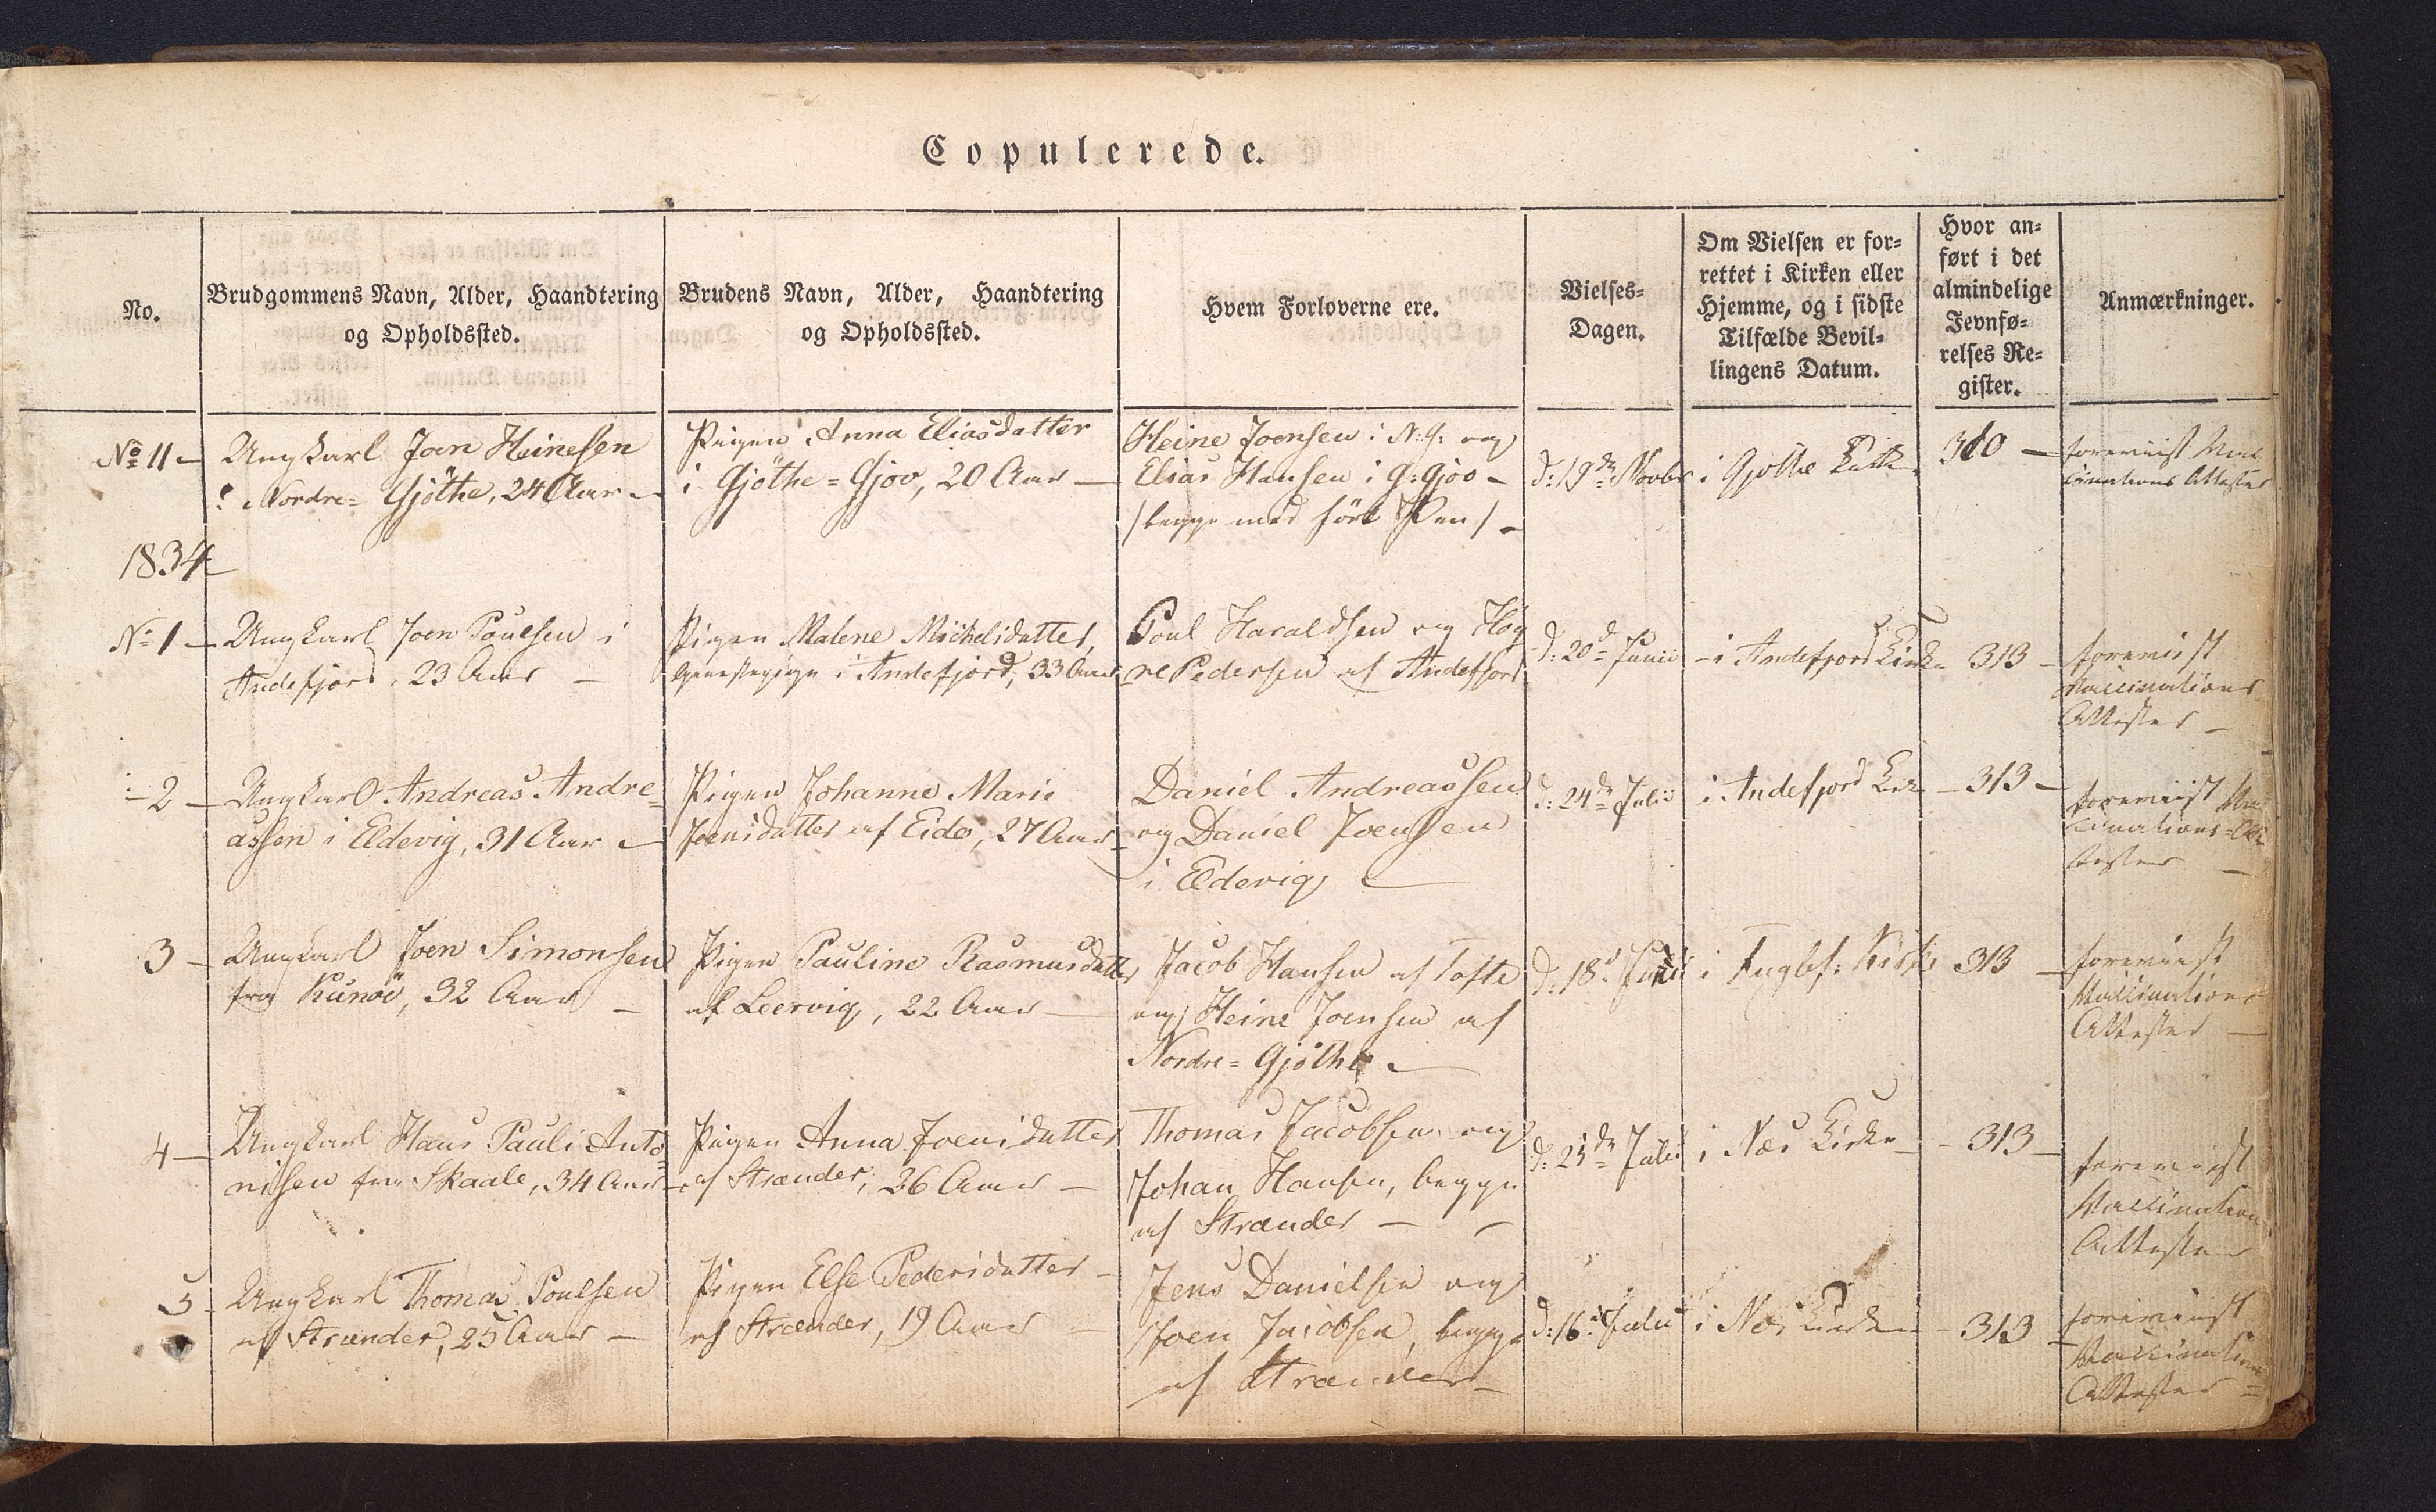 Copulerede.
No.
Brudgommens Navn, Alder, Haandtering
og Opholdssted.
Brudens Navn, Alder, Haandtering
og Opholdssted.
Hvem Forloverne ere.
Vielses-
Dagen.
Om Vielsen er for-
rettet i Kirken eller
Hjemme, og i sidste
Tilfælde Bevil-
lingens Datum.
Hvor an-
ført i det
almindelige
Jevnfø-
relses Re-
gister.
Anmærkninger.
No 11 -
Ungkarl Joen Heinesen
i Nordre= Gjöthe, 24 Aar -
Pigen Anna Eliasdatter
i Gjöthe=Gjov, 20 Aar -
Heine Joensen i N: G: og
Elias Hansen i G: Gjov -
/begge med ført Pen/ -
d: 19de Novbr
i Gjøthe Kirke
310 -
foreviist Vac
cinations Attester
1834
No 1 -
Ungkarl Joen Poulsen i
Andefjord, 23 Aar -
Pigen Malene Michelsdatter,
Tjenestepige i Andefjord, 33 Aar
Poul Haraldsen og Høg
ne Pedersen af Andefjord
d: 20d Junii
- i Andefjord Kirke
313 -
foreviist
Vaccinations
Attester -
- 2 -
Ungkarl Andreas Andre=
assen i Eldevig, 31 Aar -
Pigen Johanne Marie
Joensdatter af Eide, 27 Aar -
Daniel Andreassen
og Daniel Joensen
i Eldevig -
d: 24de Julii
i Andefjord Kirke
- 313 -
foreviist Vac
cinations=At
tester -
3 -
Ungkarl Joen Simonsen
fra Kunöe, 32 Aar -
Pigen Pauline Rasmusdatter
af Leervig, 22 Aar -
Jacob Hansen af Tofte
og Heine Joensen af
Nordre=Gjöthe -
d: 18d Julii
i Fuglef: Kirke
313 -
foreviist
Vaccinations
Attester -
4 -
Ungkarl Hans Pauli Anto=
nisen fra Skaale, 34 Aar -
Pigen Anna Joensdatter
af Strænder, 26 Aar -
Thomas Jacobsen og
Johan Hansen, begge
af Strænder -
d: 25de Julii
i Næs Kirke -
- 313 -
foreviist
Vaccination
Attester
5 -
Ungkarl Thomas Poulsen
af Strænder, 25 Aar -
Pigen Else Pedersdatter -
af Strænder, 19 Aar -
Jens Danielsen og
Joen Jacobsen, begge
af Strænder -
d: 16d Julii
i Næs Kirke
- 313 -
foreviist
Vaccination
Attester -